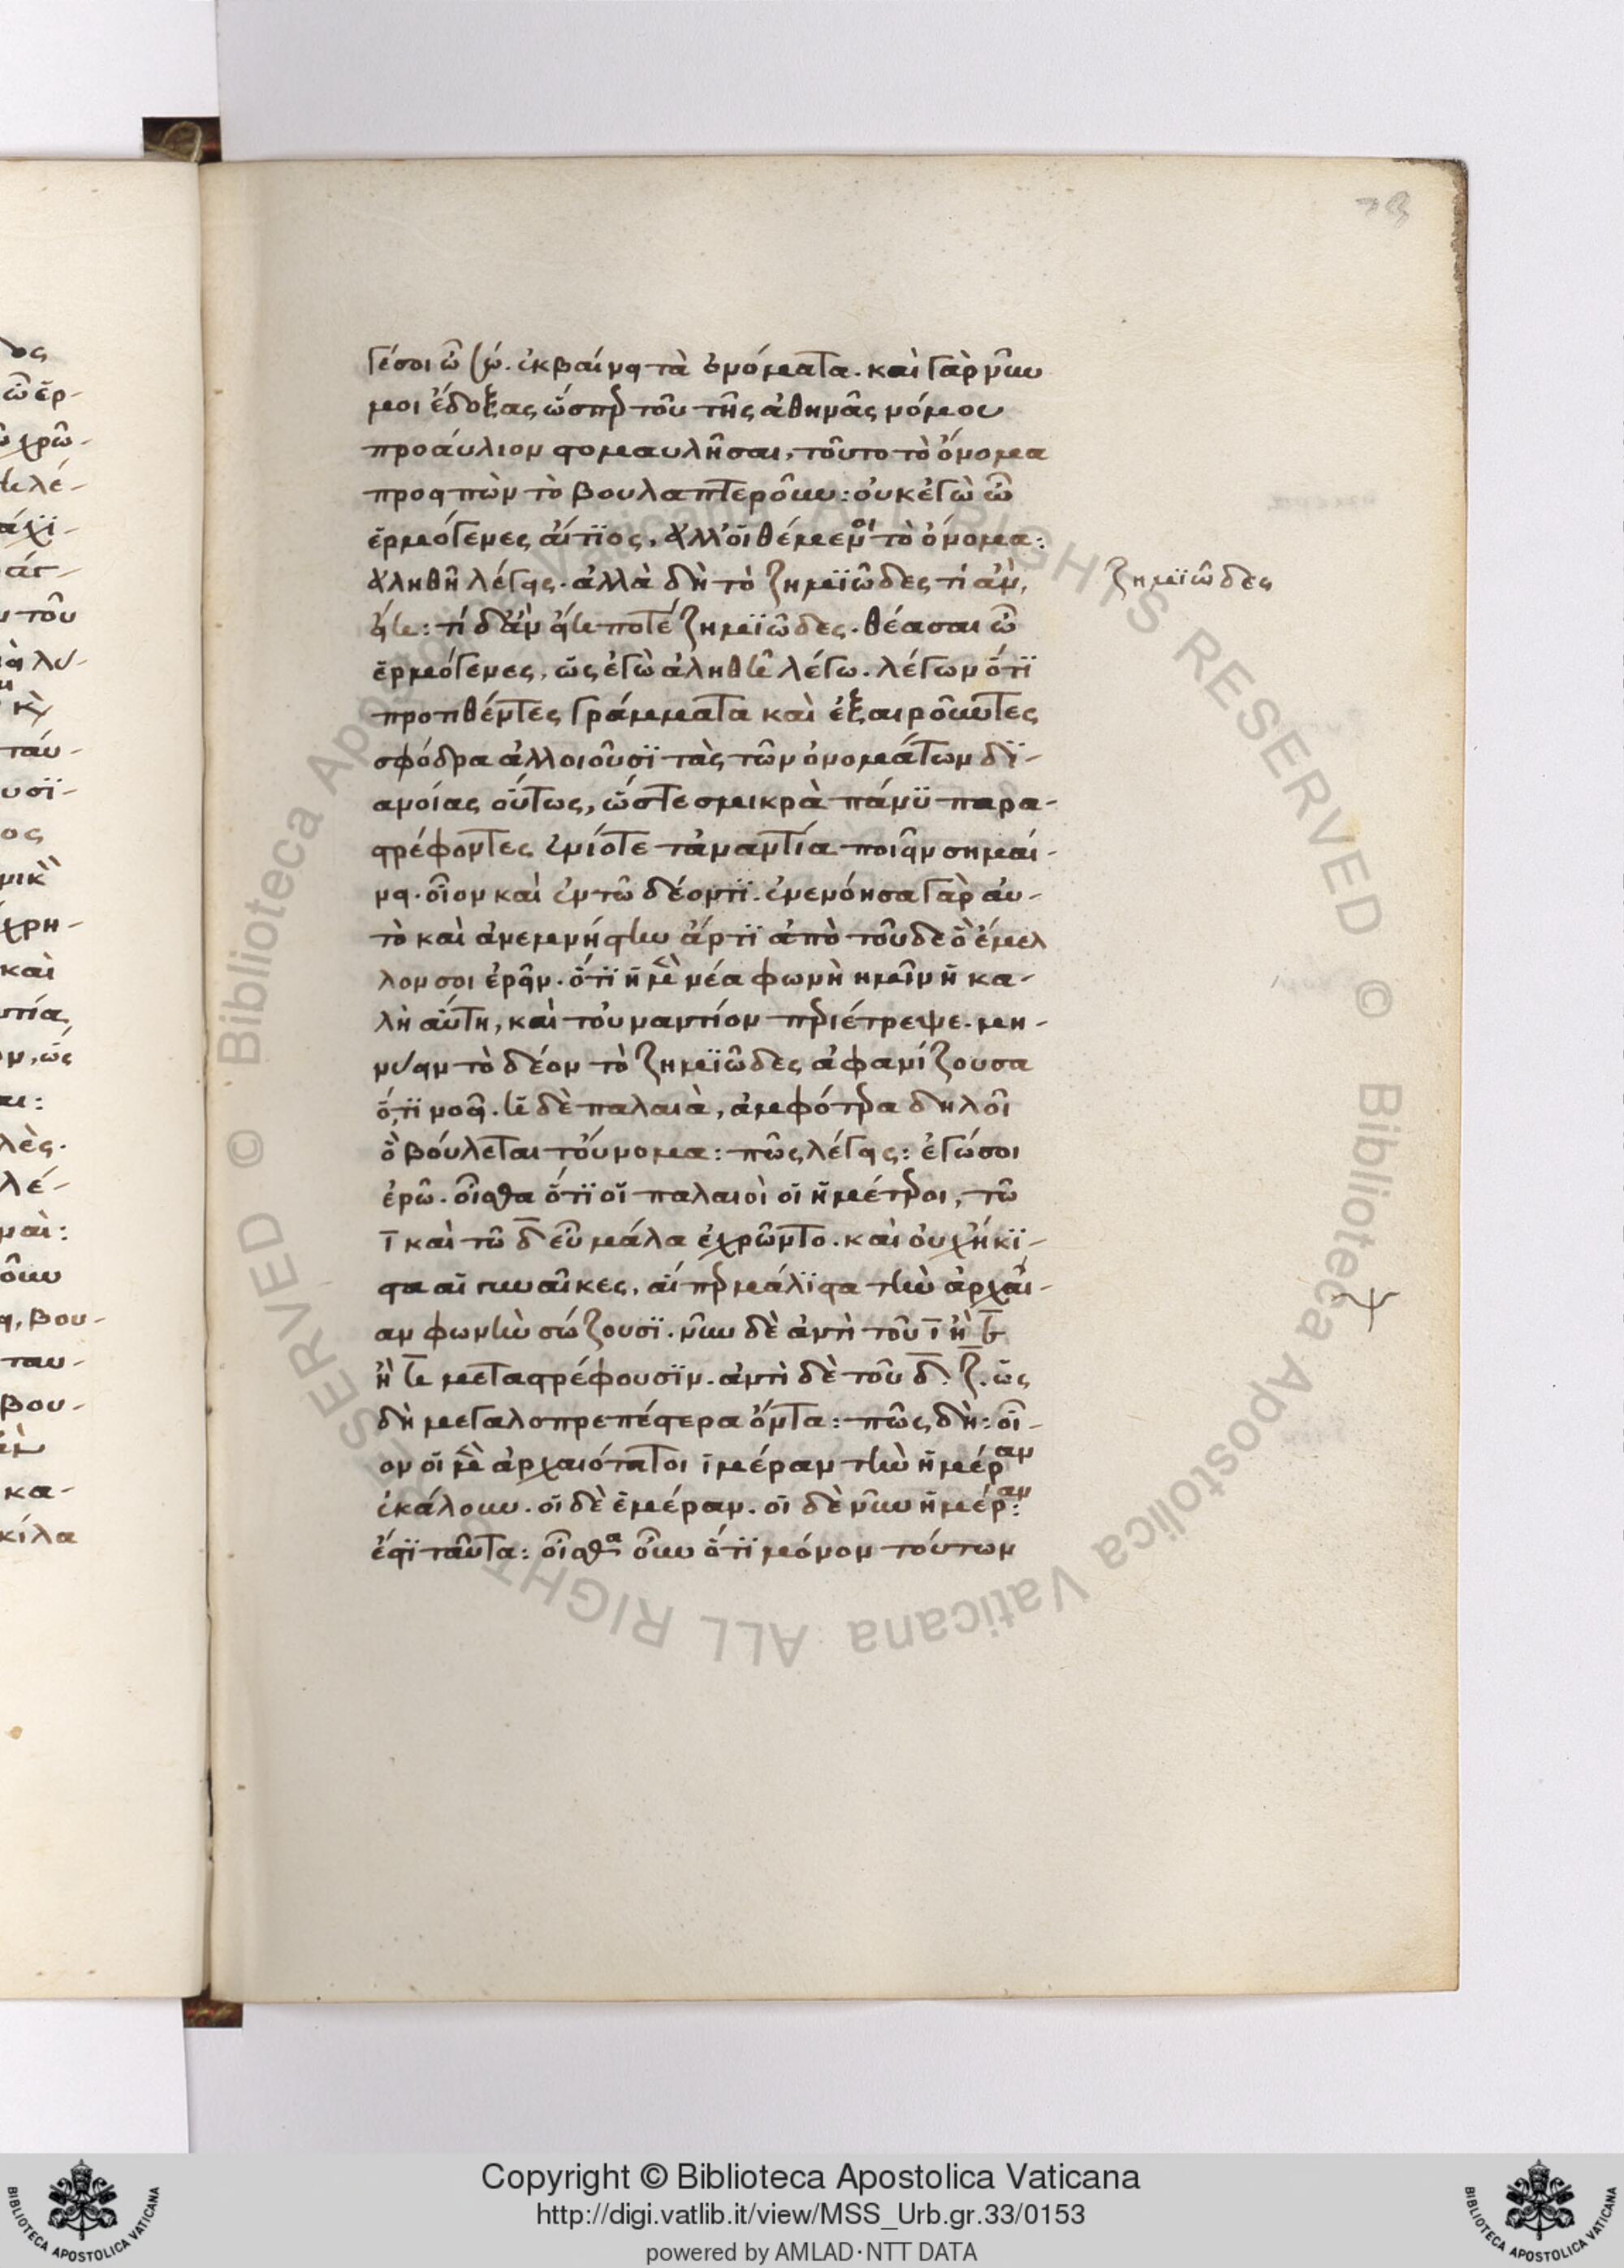 γέ σοι ὦ σώ. ἐκβαίνει τὰ ὀνόματα. καὶ γὰρ νῦν
μοι ἔδοξας ὥσπερ τοῦ τῆς ἀθηνᾶς νόμου
προαύλιον στομαυλῆσαι, τοῦτο τὸ ὄνομα
προειπὼν τὸ βουλαπτεροῦν: οὐκ ἐγὼ ὦ
ἑρμόγενες αἴτιος, ἀλλ' οἱ θέμενοι τὸ ὄνομα:
ἀληθῆ λέγεις. ἀλλὰ δὴ τὸ ζημιῶδες τί ἂν,
εἴη: τί δ' ἂν εἴη ποτὲ ζημιῶδες. θέασαι ὦ
ἑρμόγενες, ὡς ἐγὼ ἀληθῆ λέγω. λέγων ὅτι
προτιθέντες γράμματα καὶ ἐξαιροῦντες
σφόδρα ἀλλοιοῦσι τὰς τῶν ὀνομάτων δι-
ανοίας οὕτως, ὥστε σμικρὰ πάνυ παρα-
στρέφοντες ἐνίοτε τἀναντία ποιεῖν σημαί-
νει. οἷον καὶ ἐν τῶ δέοντι. ἐνενόησα γὰρ αὐ-
τὸ καὶ ἀνεμνήσθην ἄρτι ἀπὸ τοῦδε ὃ ἔμελ
λόν σοι ἐρεῖν. ὅτι ἡ μὲν νέα φωνὴ ἡμῖν ἡ κα-
λὴ αὕτη, καὶ τοὐναντίον περιέτρεψε. μη-
νύειν τὸ δέον τὸ ζημιῶδες ἀφανίζουσα
ὅ,τι νοεῖ. ἡ δὲ παλαιὰ, ἀμφότερα δηλοῖ
ὃ βούλεται τοὔνομα: πῶς λέγεις: ἐγώ σοι
ἐρῶ. οἶσθα ὅτι οἱ παλαιοὶ οἱ ἡμέτεροι, τῶ
ῑ καὶ τῶ δ̄ εὖ μάλα ἐχρῶντο. καὶ οὐχ ἥκι-
στα αἱ γυναῖκες, αἵπερ μάλιστα τὴν ἀρχαί-
αν φωνὴν σώζουσι. νῦν δὲ ἀντὶ τοῦ ῑ ἢ ε̄
ἢ η̄ μεταστρέφουσιν. ἀντὶ δὲ τοῦ δ̄. ζ̄. ὡς
δὴ μεγαλοπρεπέστερα ὄντα: πῶς δὴ: οἷ-
ον οἱ μὲν ἀρχαιότατοι ἱμέραν τὴν ἡμέραν
ἐκάλουν. οἱ δὲ ἑμέραν. οἱ δὲ νῦν ἡμέραν:
ἔστι ταῦτα: οἶσθα οὖν ὅτι μόνον τούτων
ζημιῶδες
Copyright © Biblioteca Apostolica Vaticana
http://digi.vatlib.it/view/MSS_Urb.gr.33/0153
powered by AMLAD·NTT DATA